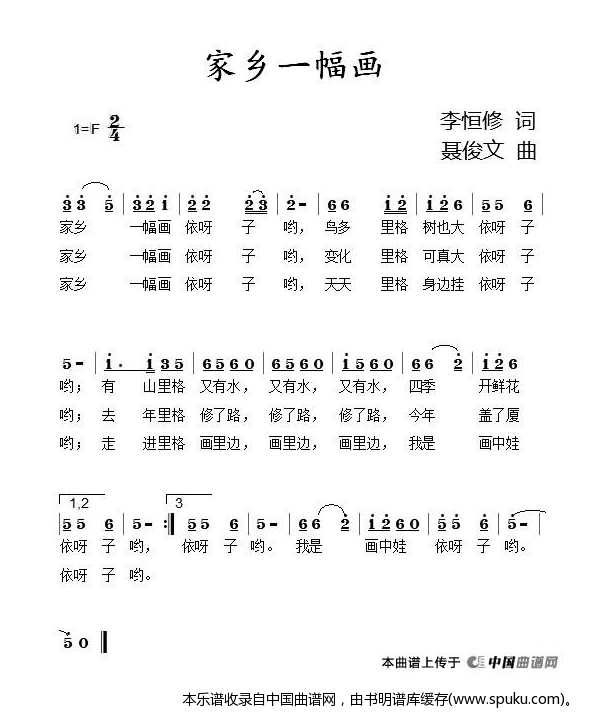 家乡一幅画
1=F 2/4
李恒修 词
聂俊文 曲
3 3 5 | 3 2 1 | 2 2 2 3 | 2 - | 6 6 1 2 | 1 2 6 | 5 5 6 |
家乡 一幅画 依呀 子 哟， 鸟多 里格 树也大 依呀 子
家乡 一幅画 依呀 子 哟， 变化 里格 可真大 依呀 子
家乡 一幅画 依呀 子 哟， 天天 里格 身边挂 依呀 子
5 - | 1 · 1 3 5 | 6 5 6 0 | 6 5 6 0 | 1 5 6 0 | 6 6 2 | 1 2 6
哟； 有 山里格 又有水， 又有水， 又有水， 四季 开鲜花
哟； 去 年里格 修了路， 修了路， 修了路， 今年 盖了厦
哟； 走 进里格 画里边， 画里边， 画里边， 我是 画中娃
1,2 3
5 5 6 | 5 - :| 5 5 6 | 5 - | 6 6 2 | 1 2 6 0 | 5 5 6 | 5 - |
依呀 子 哟， 依呀 子 哟。 我是 画中娃 依呀 子 哟。
依呀 子 哟。
5 0
本曲谱上传于 中国曲谱网
本乐谱收录自中国曲谱网，由书明谱库缓存(www.spuku.com)。